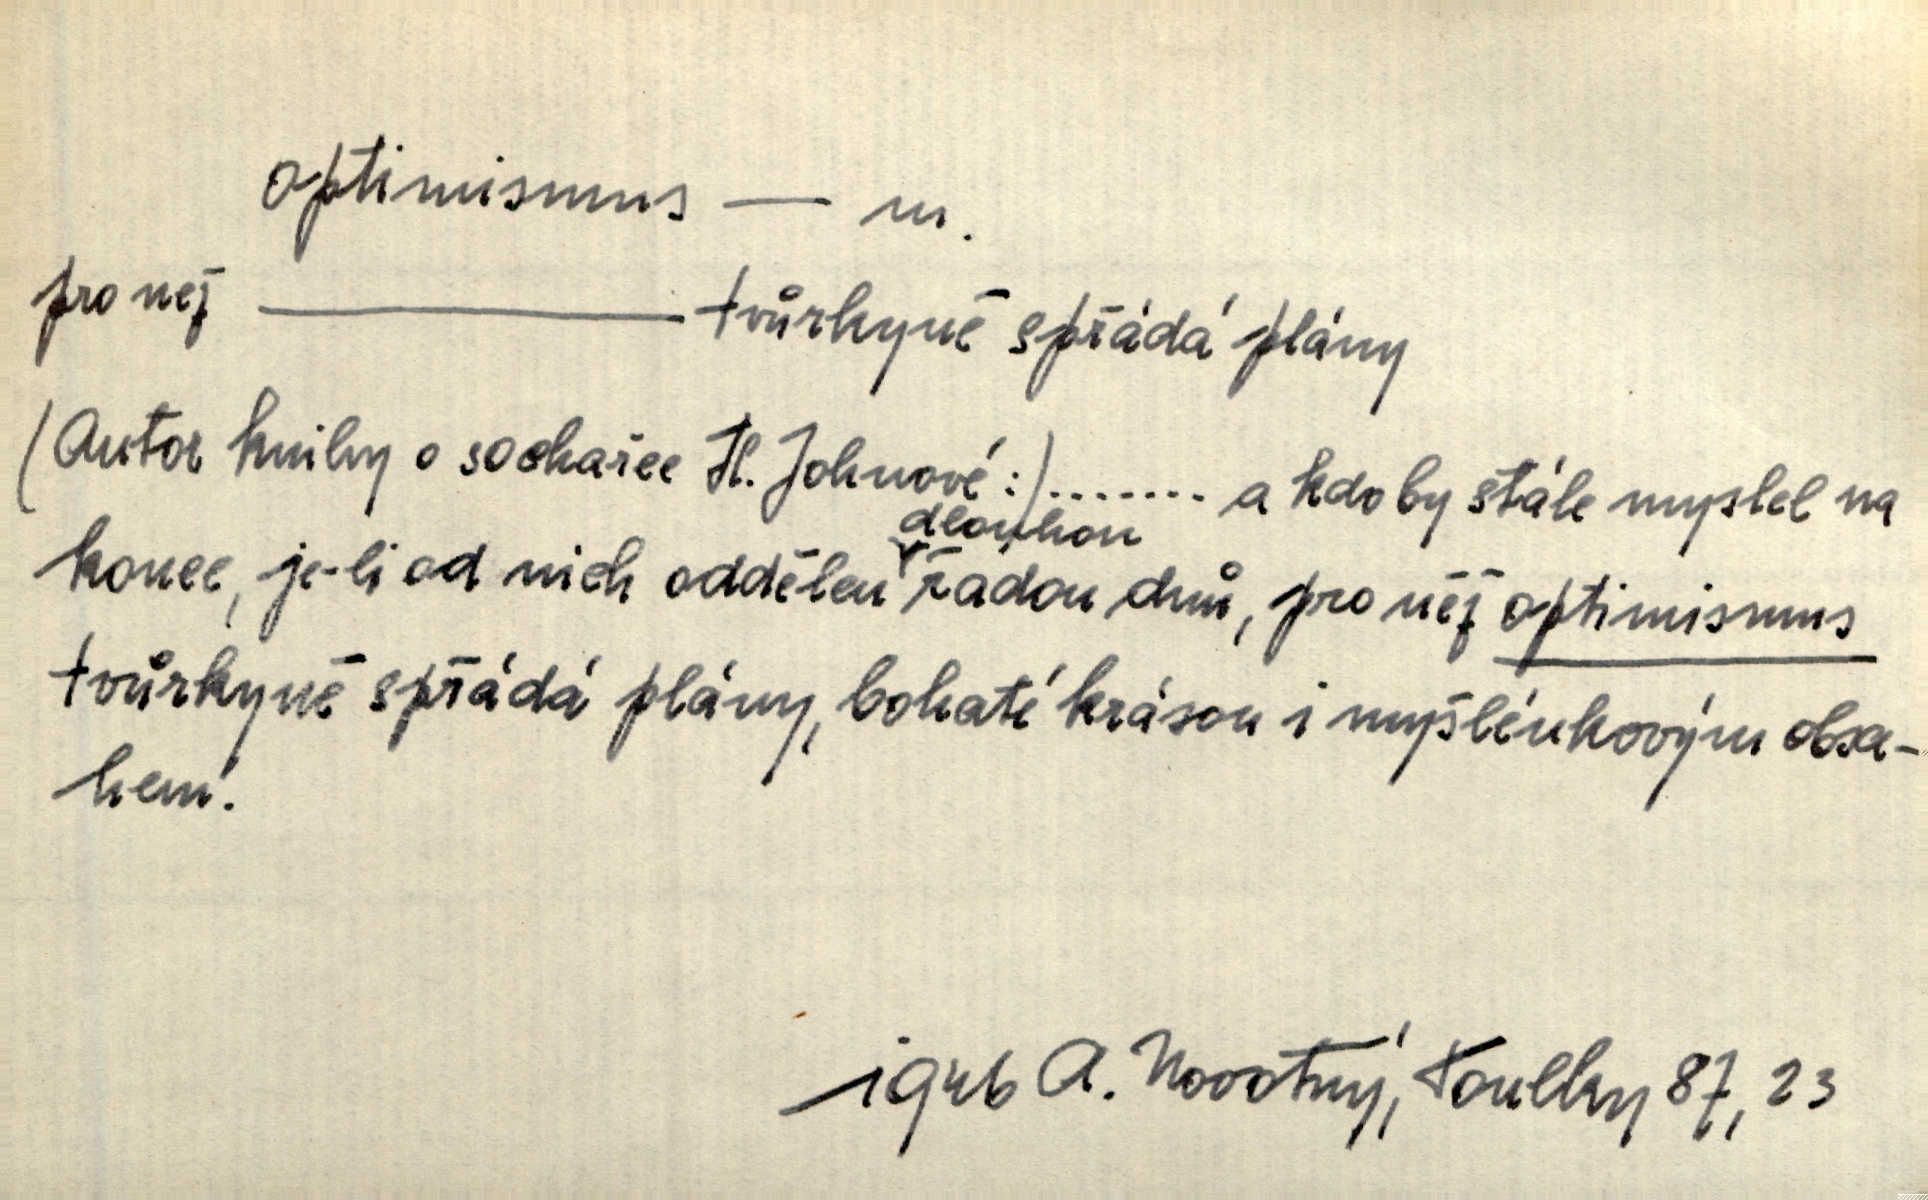 optimismus — m.
pro nej ——— tvůrkyně spřádá plány
(Autor knihy o sochařce H. Johnové:) ........ a kdo by stále myslel na
dlouhou
konec, je-li od nich oddělen řadou dnů, pro něj optimismus
tvůrkyně spřádá plány, bohaté krásou i myšlénkovým obsa-
hem.
1946 A. Novotný, Toulky 87, 23